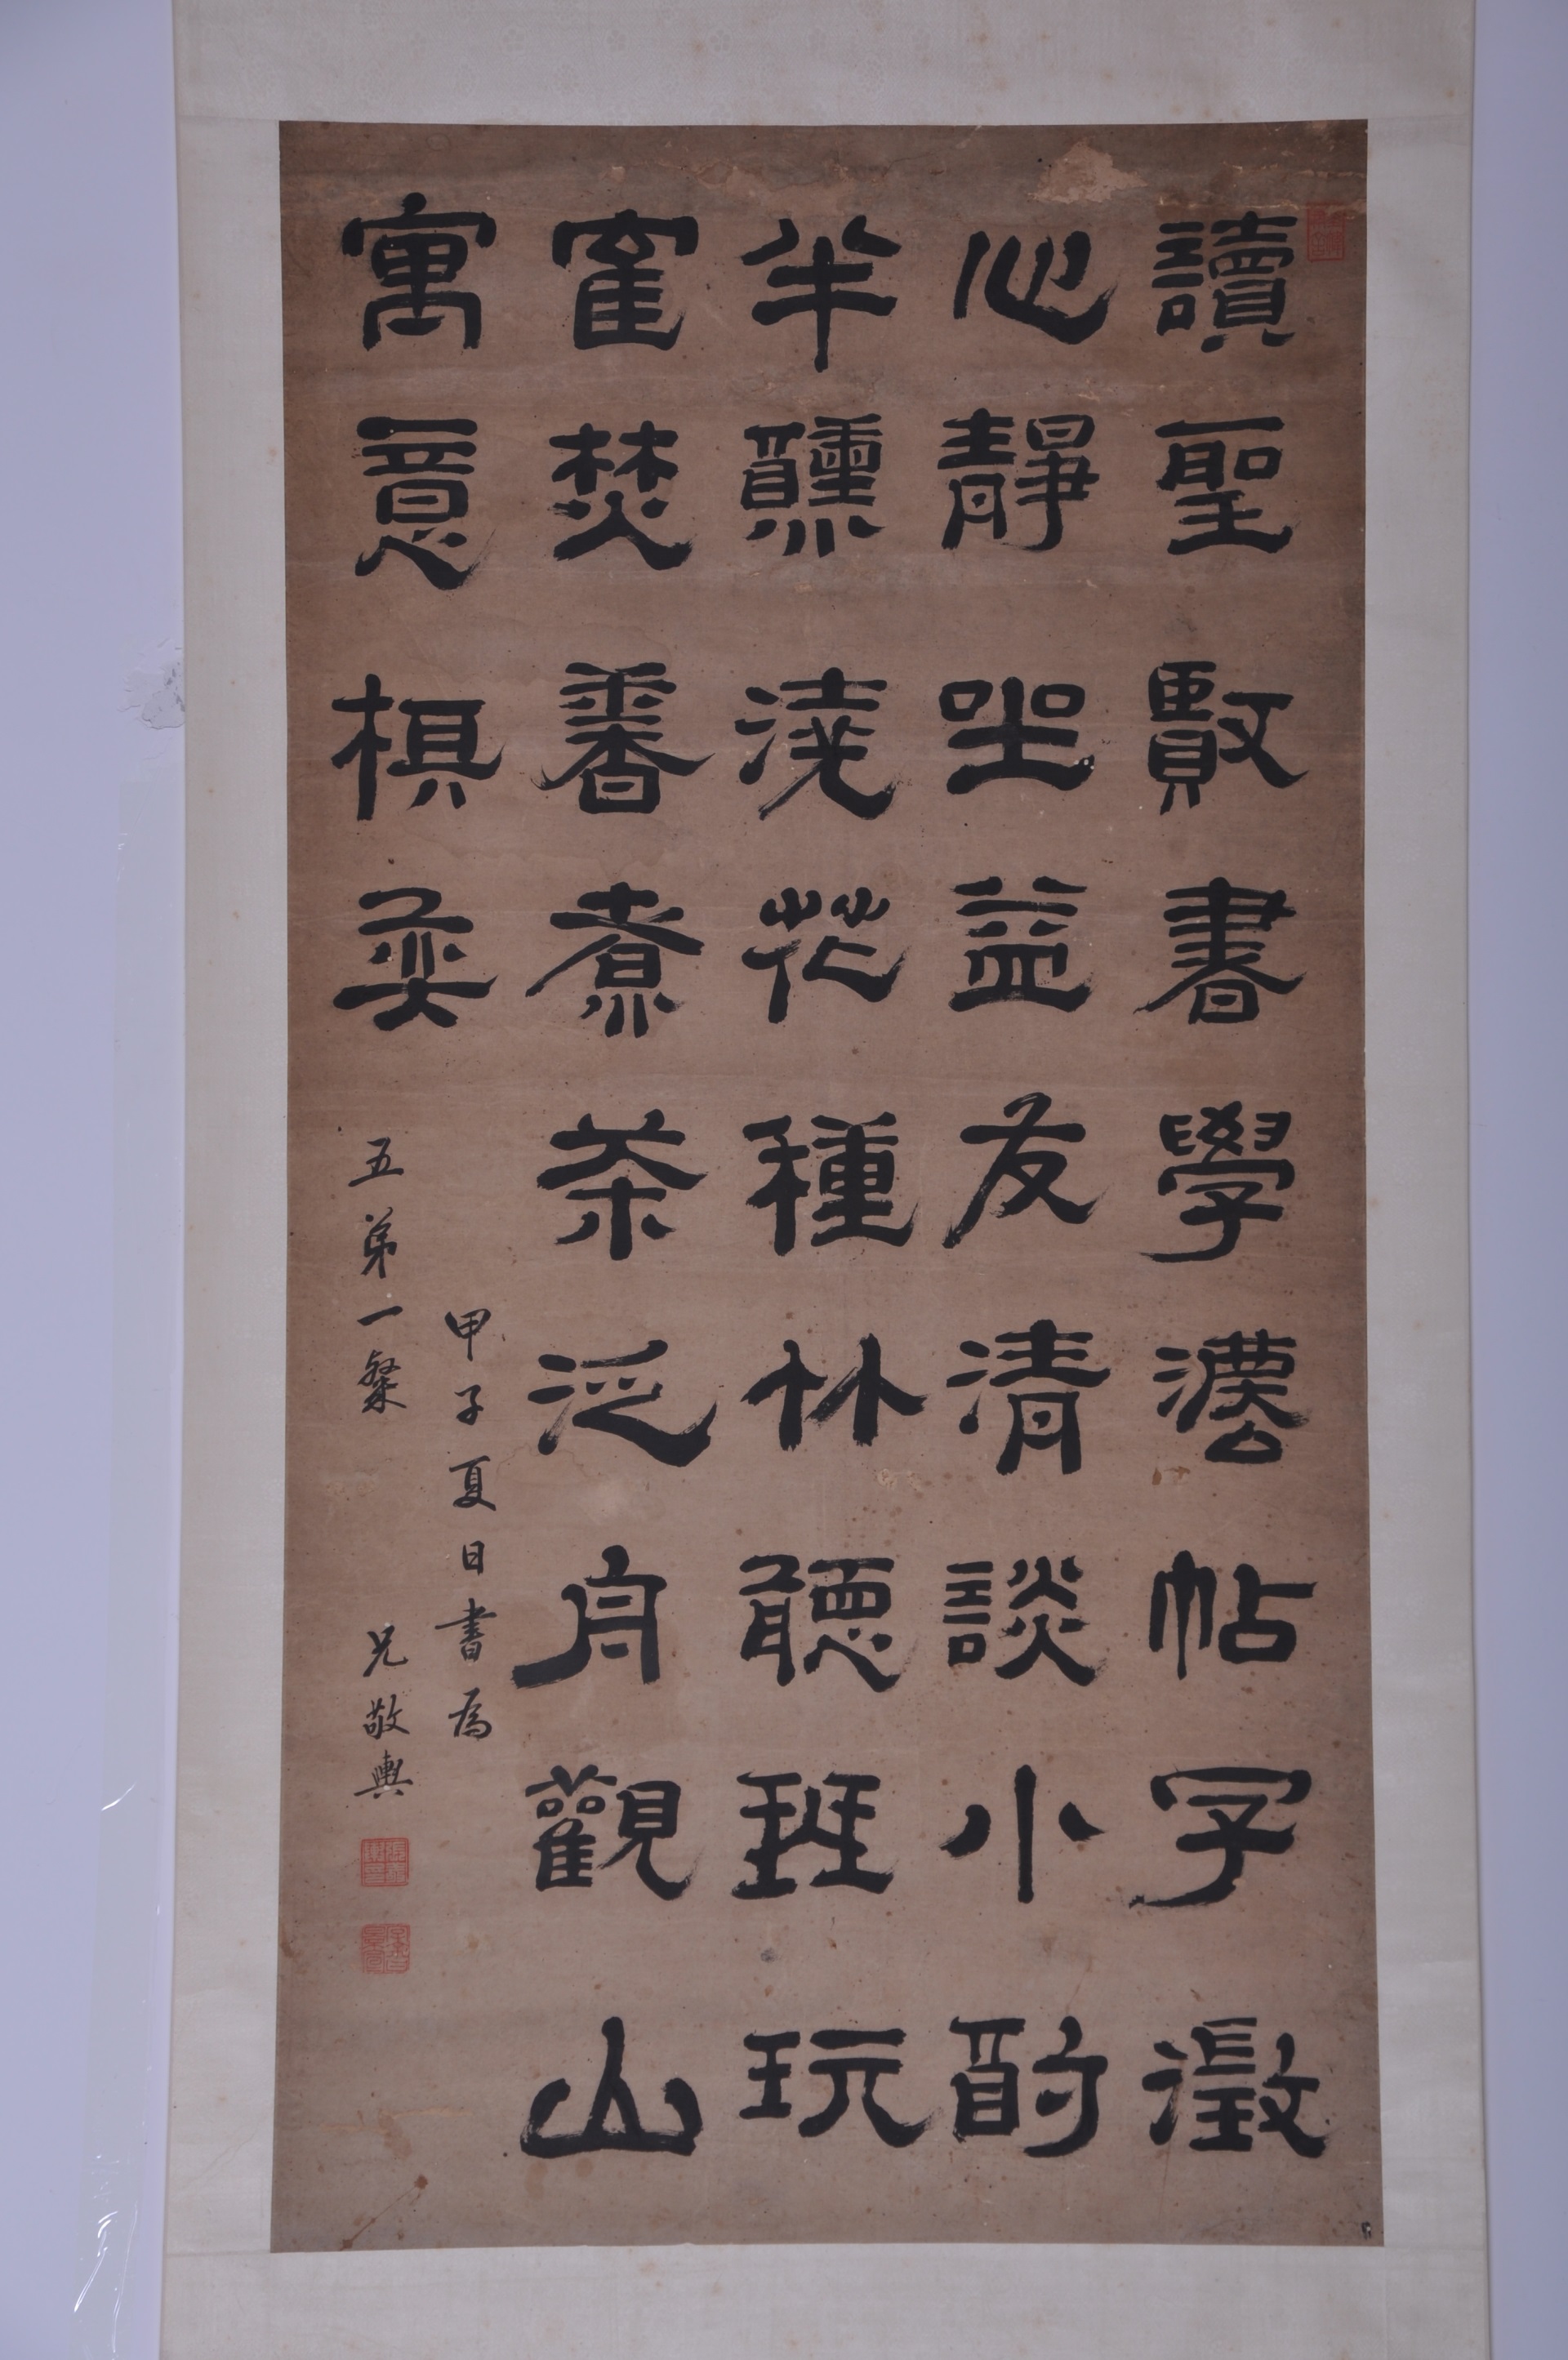 讀聖賢書學灋帖字澂
心靜坐益友清談小酌
半醺澆花種竹聽琴玩
寉焚香煮茶泛舟觀山
寓意棋奕
甲子夏日書為
五弟一粲　兄敬輿